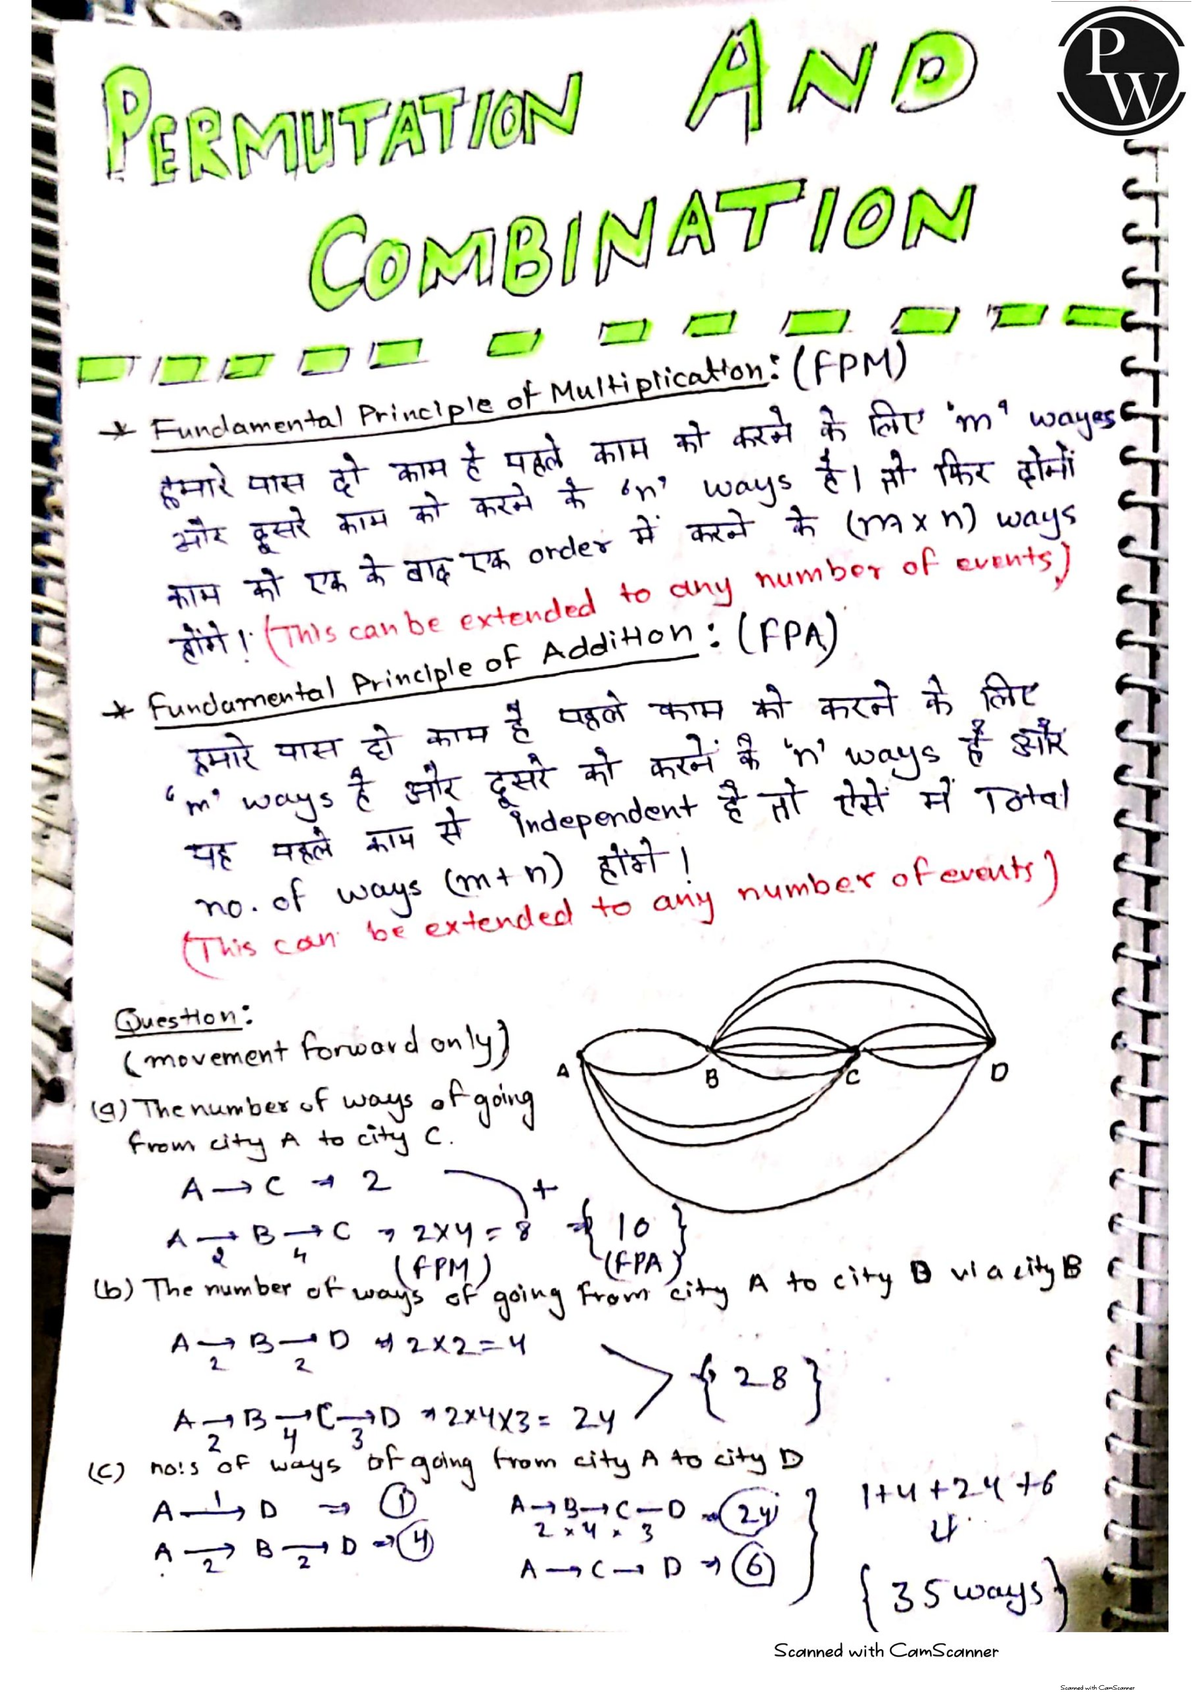 PW
PERMUTATION AND
COMBINATION
* Fundamental Principle of Multiplication: (FPM)
हमारे पास दो काम है पहले काम को करने के लिए 'm' wayes
और दूसरे काम को करने के 'n' ways है। तो फिर दोनों
काम को एक के बाद एक order में करने के (m x n) ways
होंगे! (This can be extended to any number of events)
* Fundamental Principle of Addition: (FPA)
हमारे पास दो काम है पहले काम को करने के लिए
'm' ways है और दूसरे को करनें के 'n' ways है और
यह पहले काम से independent है तो ऐसे में Total
no. of ways (m+n) होंगे!
(This can be extended to any number of events)
Question:
(movement forward only)
A B C D
(a) The number of ways of going
from city A to city C.
A → C → 2
+
A → B → C → 2x4 = 8 ⇒ { 10 }
2 4 (FPM) (FPA)
(b) The number of ways of going from city A to city D via city B
A → B → D ⇒ 2x2=4
2 2
{ 28 }
A → B → C → D ⇒ 2x4x3 = 24
2 4 3
(c) no:s of ways of going from city A to city D
A –1→ D ⇒ 1
A → B → D ⇒ 4
2 2
A → B → C – D → 24
2 x 4 x 3
A → C → D → 6
1+4+24+6
{ 35 ways }
Scanned with CamScanner
Scanned with CamScanner